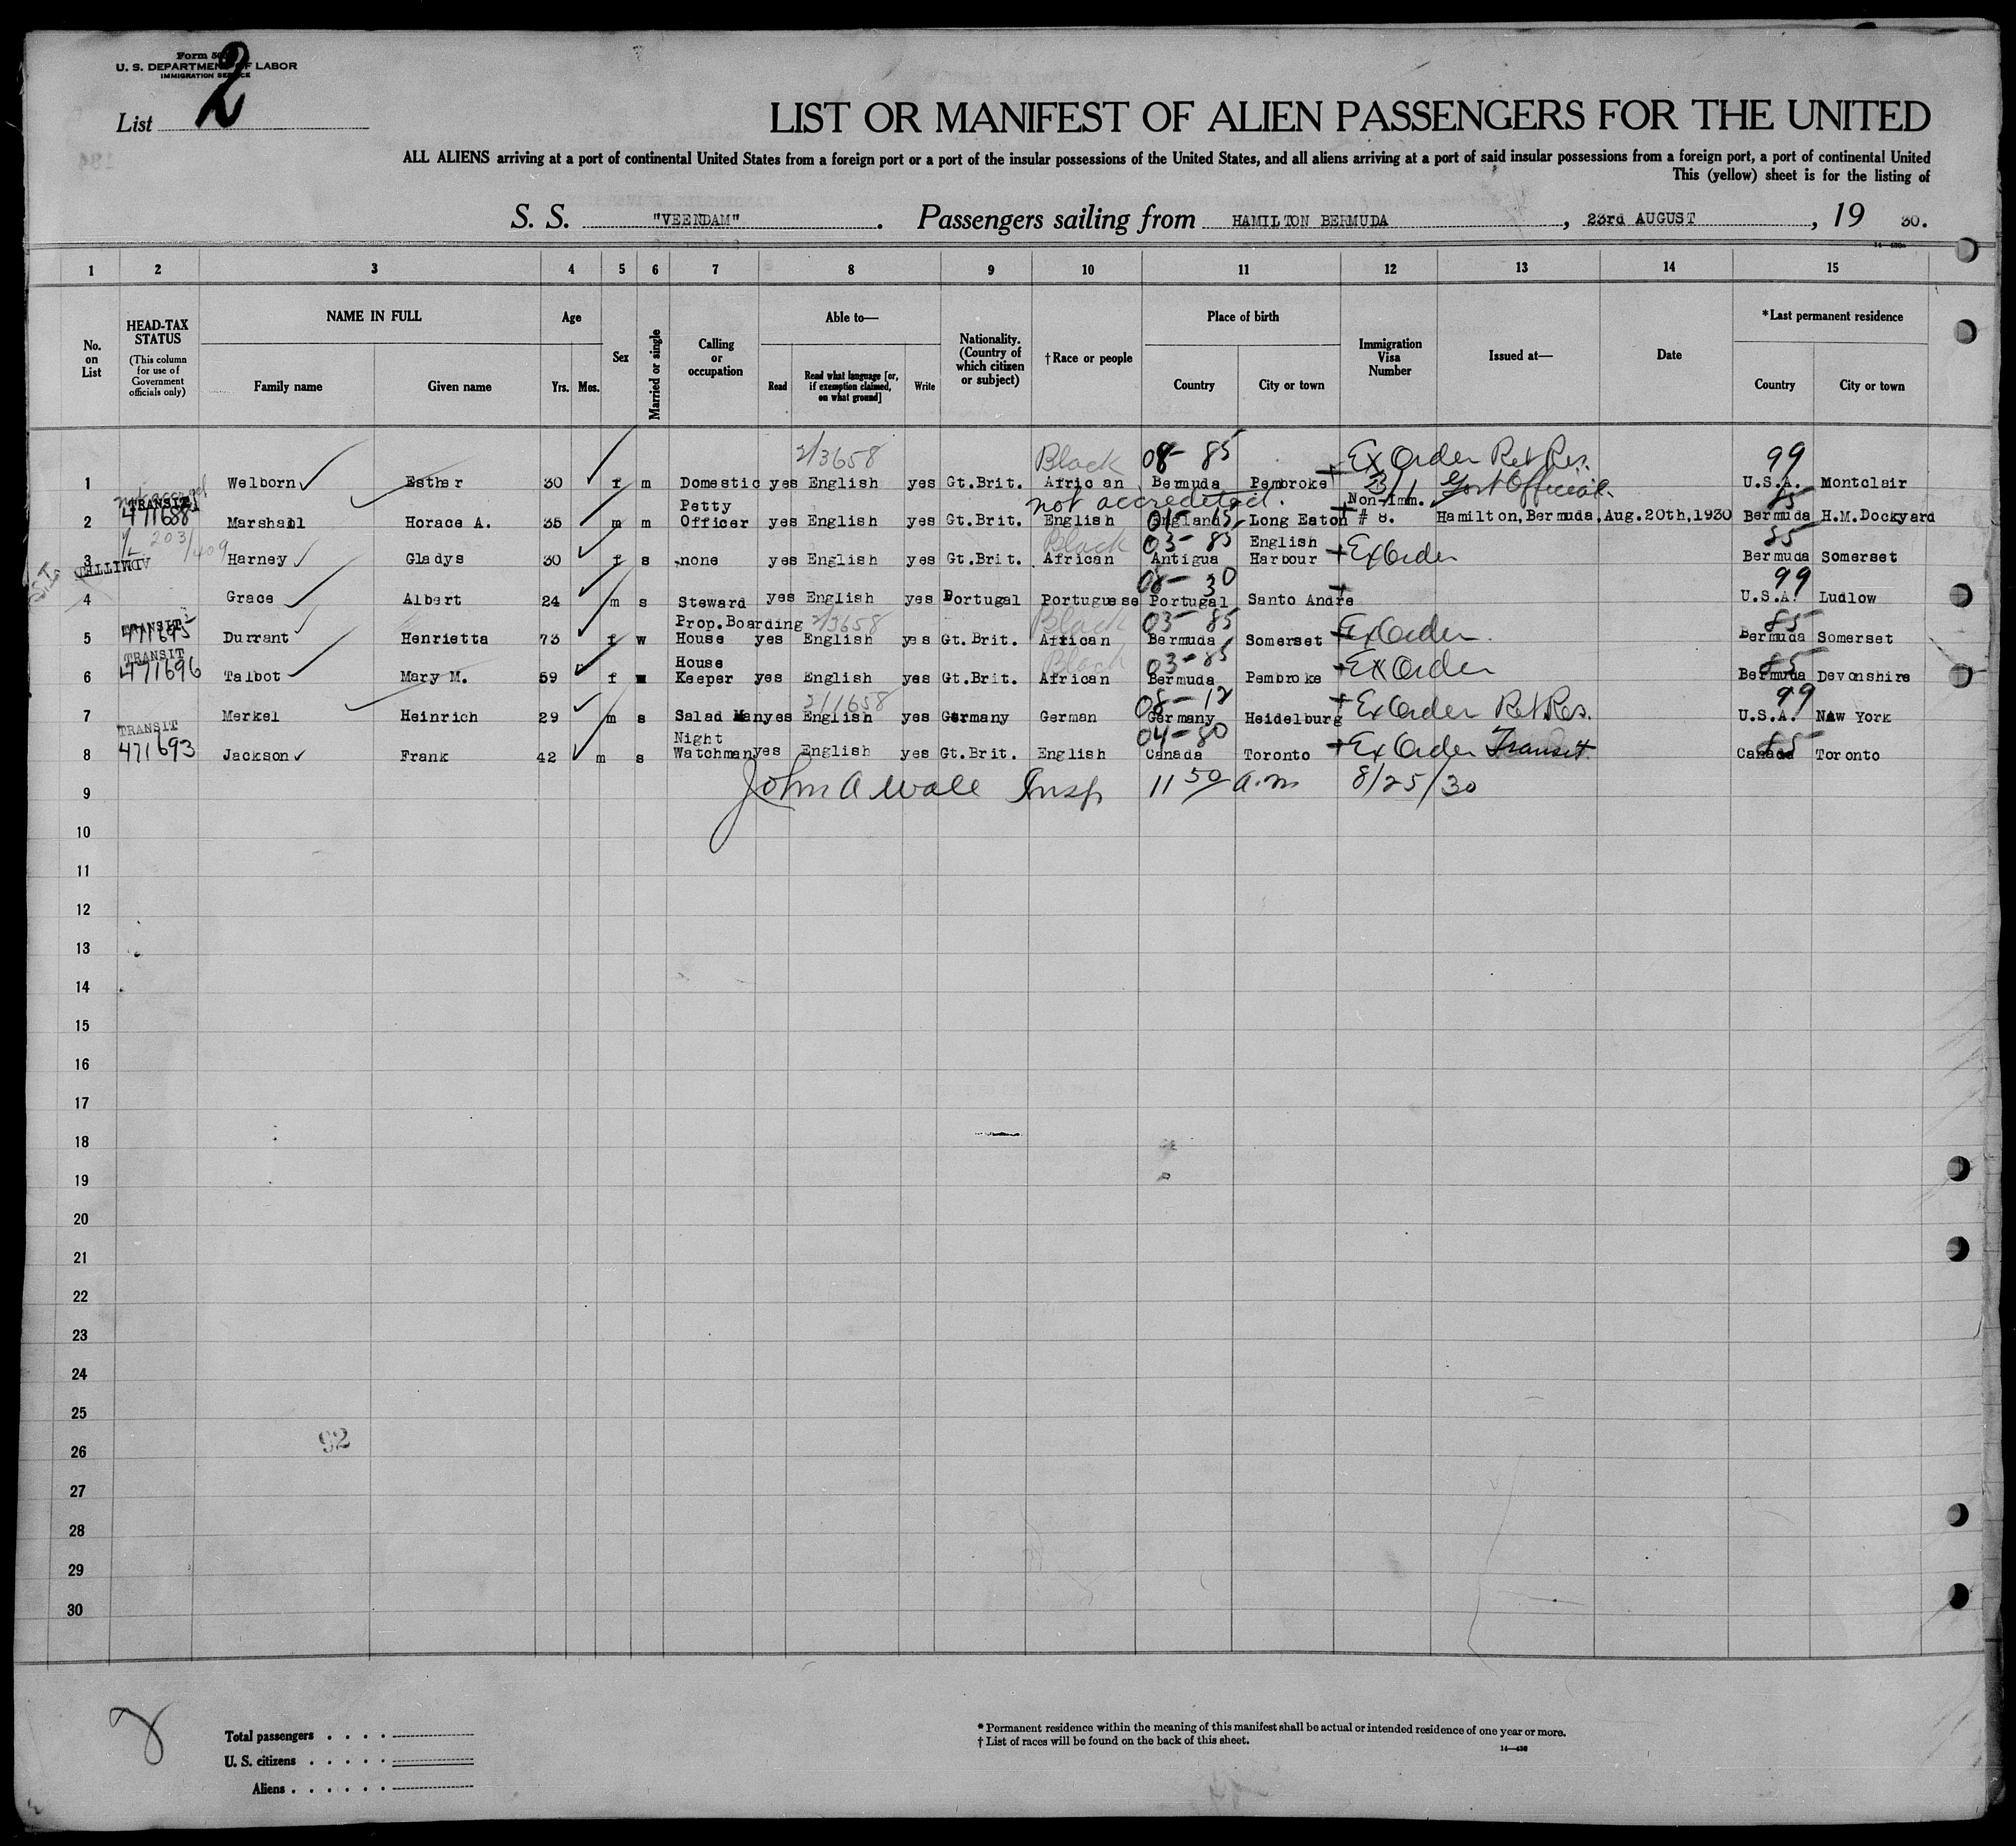 Form 50
U. S. DEPARTMENT OF LABOR
IMMIGRATION SERVICE
List 2
LIST OR MANIFEST OF ALIEN PASSENGERS FOR THE UNITED
ALL ALIENS arriving at a port of continental United States from a foreign port or a port of the insular possessions of the United States, and all aliens arriving at a port of said insular possessions from a foreign port, a port of continental United
This (yellow) sheet is for the listing of
S. S. "VEENDAM". Passengers sailing from HAMILTON BERMUDA, 23rd AUGUST, 19 30.
1 2 3 4 5 6 7 8 9 10 11 12 13 14 15
No. on List
HEAD-TAX STATUS
(This column for use of Government officials only)
NAME IN FULL
Family name Given name
Age
Yrs. Mos.
Sex
Married or single
Calling or occupation
Able to—
Read
Read what language [or, if exemption claimed, on what ground]
Write
Nationality. (Country of which citizen or subject)
†Race or people
Place of birth
Country City or town
Immigration Visa Number
Issued at—
Date
*Last permanent residence
Country City or town
2/3658 Black 08- 85 Ex Order Ret Res. 99
1 Welborn Esther 30 f m Domestic yes English yes Gt.Brit. African Bermuda Pembroke 3/1 Govt Official. U.S.A. Montclair
TRANSIT Petty not accredited. Non-Imm. 85
2 471688 Marshall Horace A. 35 m m Officer yes English yes Gt.Brit. English England Long Eaton # 8. Hamilton, Bermuda, Aug. 20th, 1930 Bermuda H.M.Dockyard
203/409 Black 03- 85 English 85
3 ADMITTED Harney Gladys 30 f s none yes English yes Gt.Brit. African Antigua Harbour Ex Order Bermuda Somerset
S.I. 08- 30 99
4 Grace Albert 24 m s Steward yes English yes Portugal Portuguese Portugal Santo Andre U.S.A. Ludlow
TRANSIT Prop. Boarding 2/3658 Black 03- 85 85
5 471695 Durrant Henrietta 73 f w House yes English yes Gt.Brit. African Bermuda Somerset Ex Order Bermuda Somerset
TRANSIT House Black 03-85 85
6 471696 Talbot Mary M. 59 f Keeper yes English yes Gt.Brit. African Bermuda Pembroke Ex Order Bermuda Devonshire
2/1658 08- 12 99
7 Merkel Heinrich 29 m s Salad Man yes English yes Germany German Germany Heidelburg Ex Order Ret Res. U.S.A. New York
TRANSIT Night 04-80 85
8 471693 Jackson Frank 42 m s Watchman yes English yes Gt.Brit. English Canada Toronto Ex Order Transit Canada Toronto
9 John A Wall Insp 11 50 a.m 8/25/30
10
11
12
13
14
15
16
17
18
19
20
21
22
23
24
25
26
92
27
28
29
30
8
Total passengers . . . .
U. S. citizens . . . . .
Aliens . . . . . .
* Permanent residence within the meaning of this manifest shall be actual or intended residence of one year or more.
† List of races will be found on the back of this sheet.
14—430